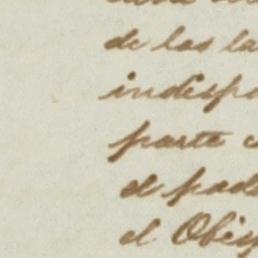 de las la
indispo
parte
el pad
el Obis